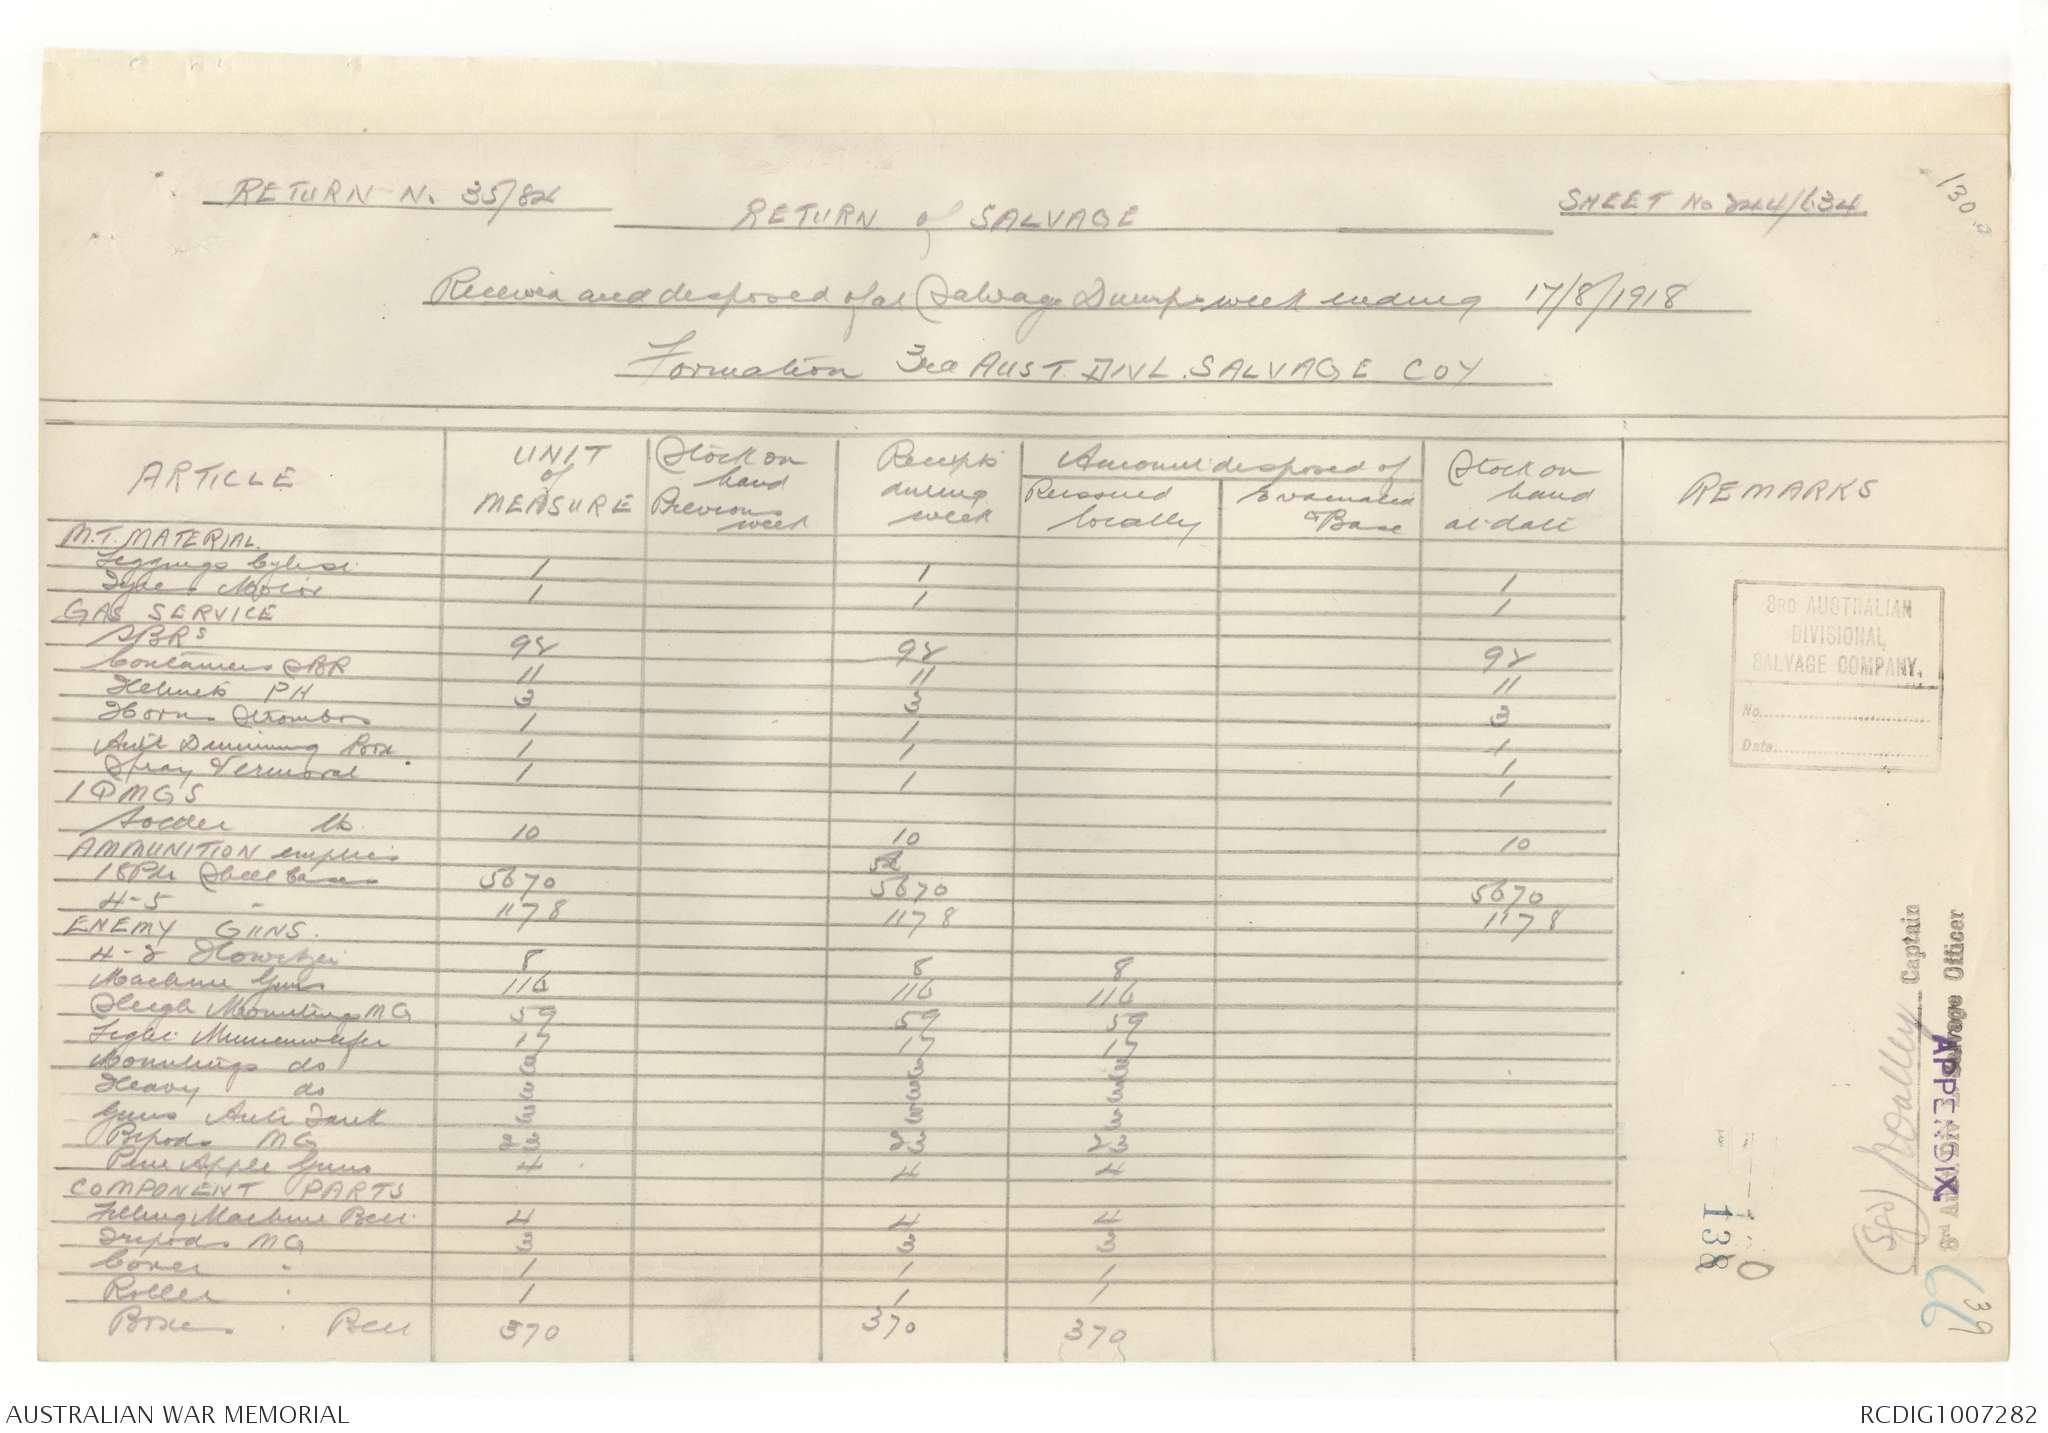 RETURN No. 35/82
RETURN of SALVAGE
SHEET No 244/634
130
Received and disposed of at Salvage Dumps week ending 17/8/1918
Formation 3rd AUST. DIVL. SALVAGE COY
ARTICLE UNIT of MEASURE Stock on hand Previous week Receipts during week Amount disposed of Reissued locally Evacuated to Base Stock on hand at date REMARKS
M.T. MATERIAL.
Leggings Cyclist 1 1
Tyres Motor 1 1 1
GAS SERVICE
SBRs 92 92 92
Containers SBR 11 11 11
Helmets PH 3 3 3
Horns Strombos 1 1 1
Anti Dimming Box 1 1 1
Spray Vermoral 1 1 1
IQMGS
Solder lb. 10 10 10
AMMUNITION empties
18Pdr Shell Cases 5670 5670 5670
4-5 " 1178 1178 1178
ENEMY GUNS.
4-2 Howitzer 8 8 8
Machine Guns 116 116 116
Sleigh Mountings MG 59 59 59
Light Minnenwefer 15 15 15
Mountings do 3 3 3
Heavy do 3 3 3
Guns Anti Tank 3 3 3
Bipods MG 23 23 23
Pine Apple Guns 4 4 4
COMPONENT PARTS
Filling Machine Belt 4 4 4
Tripods MG 3 3 3
Cover " 1 1 1
Roller " 1 1 1
Boxes " Belt 370 370 370
3RD AUSTRALIAN
DIVISIONAL
SALVAGE COMPANY.
No.
Date
(Sgd) Captain
3rd Aust. Div. Salvage Officer
APPENDIX
138
39
AUSTRALIAN WAR MEMORIAL
RCDIG1007282